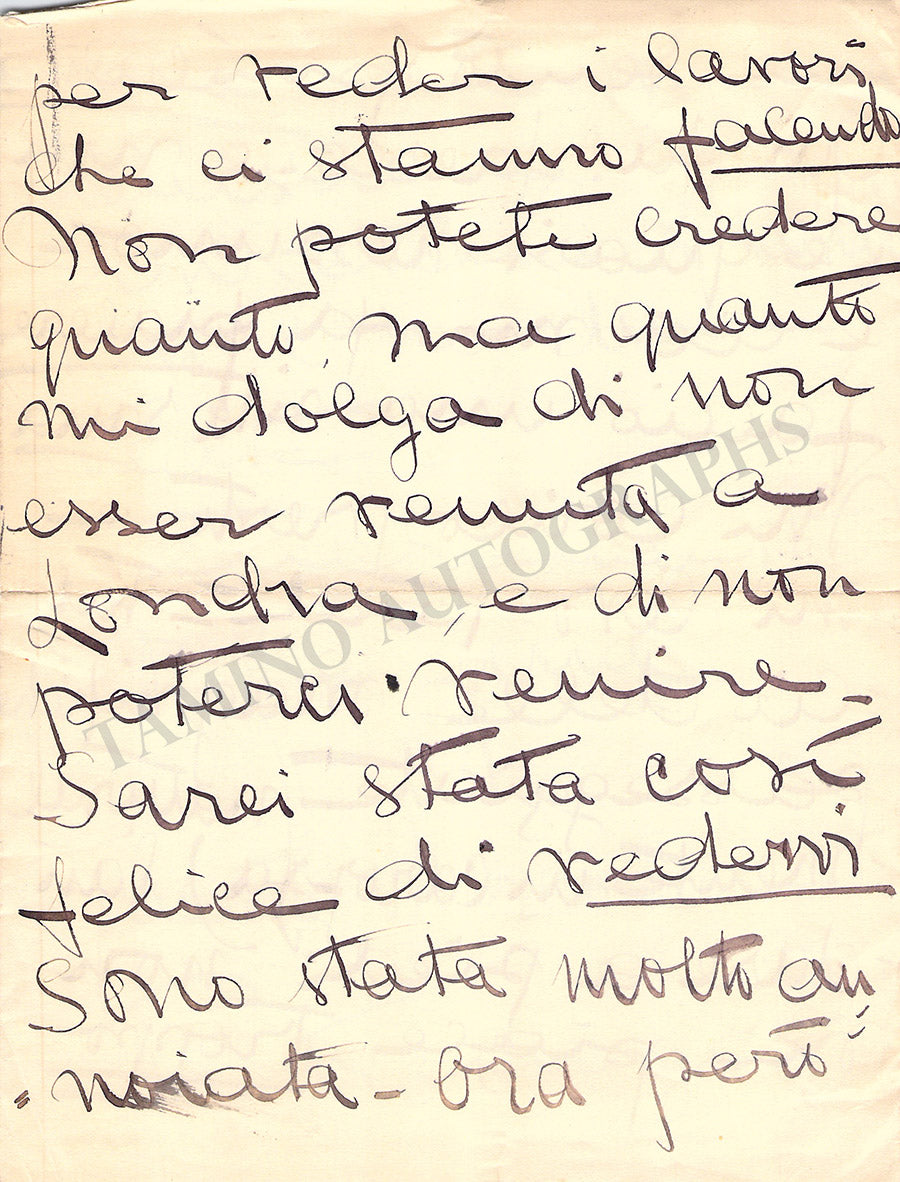 per veder i lavori
che ci stanno facendo
Non potete credere
quanto, ma quanto
mi dolga di non
esser venuta a
Londra, e di non
poterci venire -
Sarei stata così
felice di vedervi
Sono stata molto an=
=noiata - Ora però
TAMINO AUTOGRAPHS